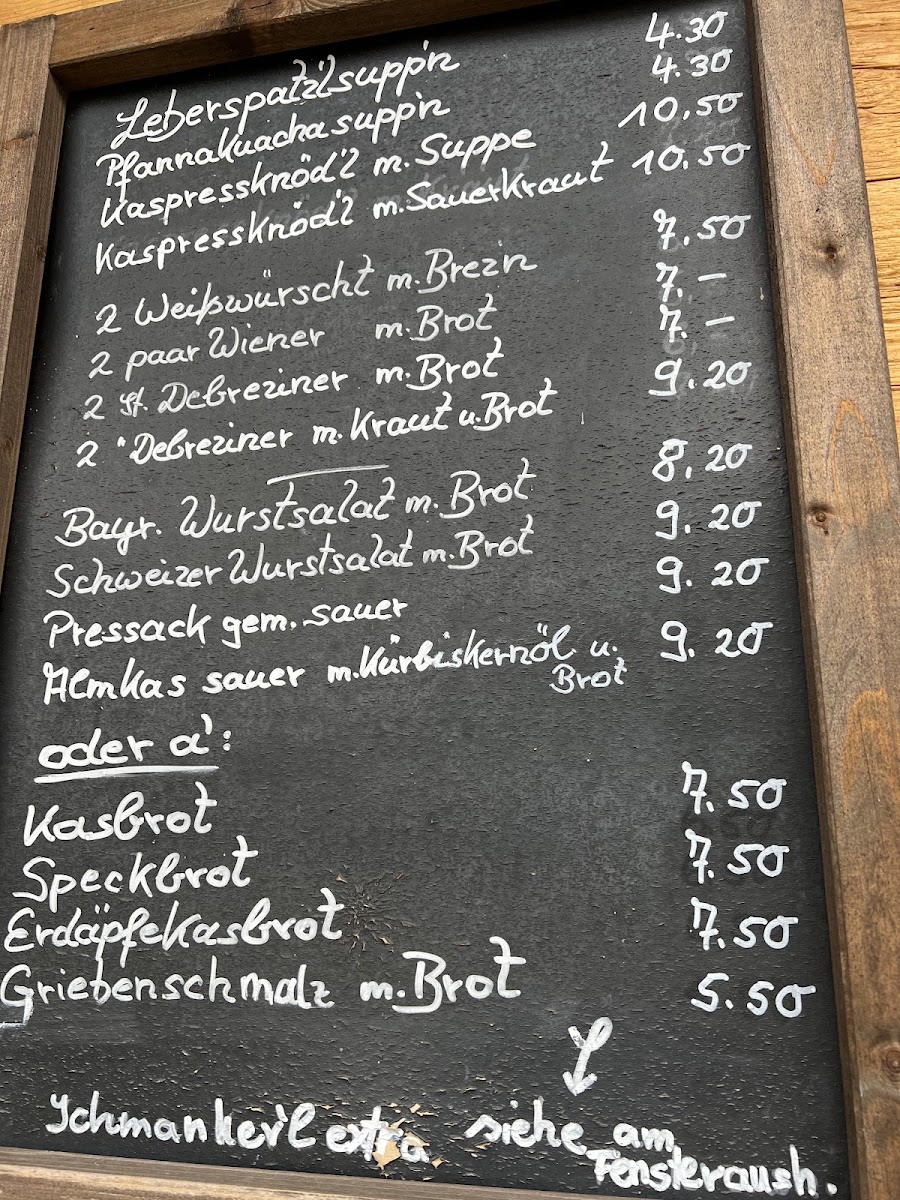 Leberspatz'lsupp'n 4.30
Pfannakuacha supp'n 4.30
Kaspressknöd'l m. Suppe 10,50
Kaspressknöd'l m. Sauerkraut 10.50
2 Weißwürscht m. Brezin 7.50
2 paar Wiener m. Brot 7.–
2 St. Debreziner m. Brot 7.–
2 " Debreziner m. Kraut u. Brot 9.20
Bayr. Wurstsalat m. Brot 8.20
Schweizer Wurstsalat m. Brot 9.20
Pressack gem. sauer 9.20
Almkas sauer m. Kürbiskernöl u. 9.20
Brot
oder a':
Kasbrot 7.50
Speckbrot 7.50
Erdäpfekasbrot 7.50
Griebenschmalz m. Brot 5.50
Schmankerl extra siehe am
Fensteraush.